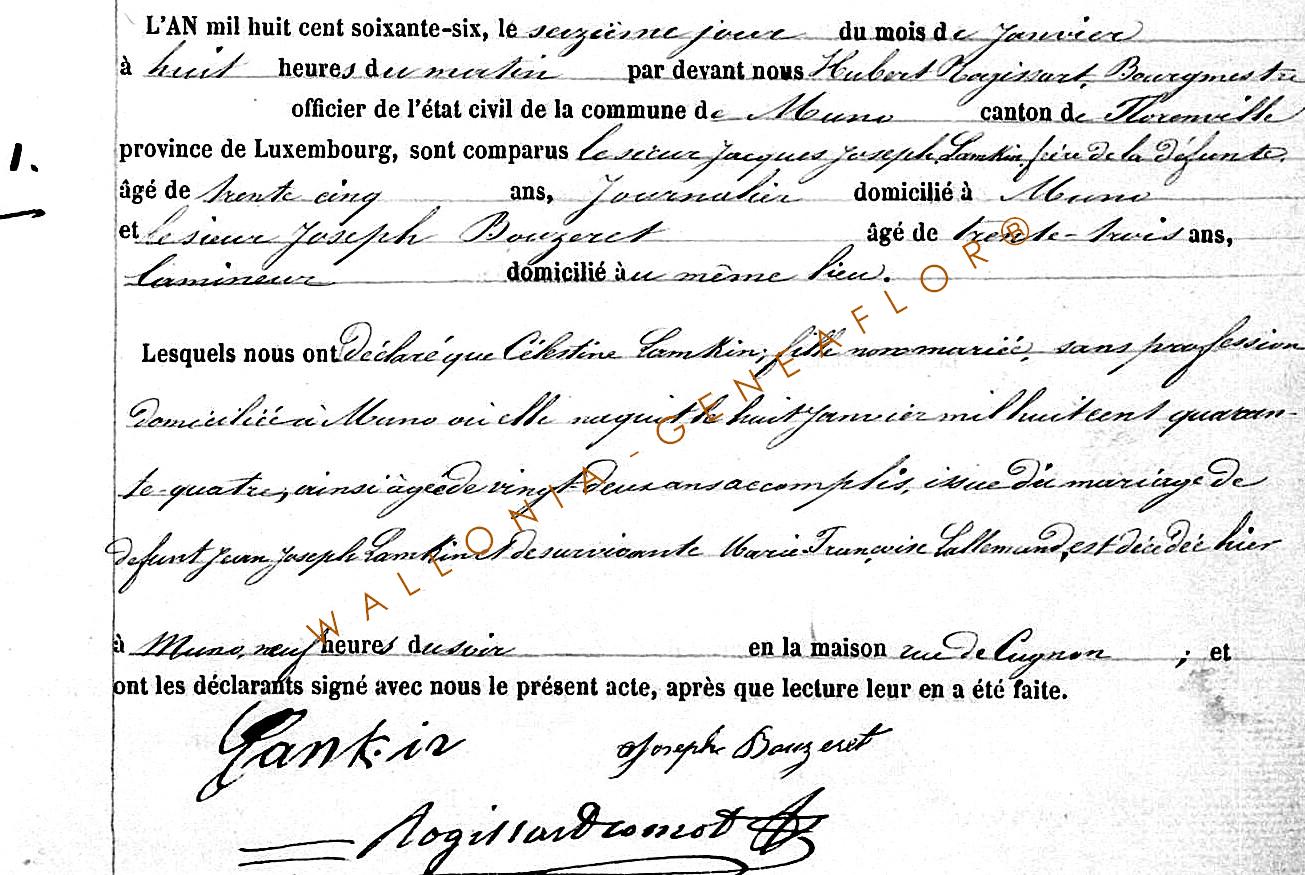 L'AN mil huit cent soixante-six, le seizième jour du mois de Janvier
à huit heures du matin par devant nous Hubert Rogissart, Bourgmestre
officier de l'état civil de la commune de Muno canton de Florenville
1.
province de Luxembourg, sont comparus le sieur Jacques Joseph Lamkin frère de la défunte,
âgé de trente cinq ans, Journalier domicilié à Muno
et le sieur Joseph Bouzeret âgé de trente-trois ans,
lamineur domicilié au même lieu.
Lesquels nous ont déclaré que Célestine Lamkin, fille non mariée, sans profession
domiciliée à Muno où elle naquit le huit Janvier mil huit cent quaran-
te-quatre, ainsi âgée de vingt-deux ans accomplis, issue du mariage de
defunt Jean Joseph Lamkin et de survivante Marie Françoise Lallemand, est décédée hier
à Muno, neuf heures du soir en la maison rue de Cugnon ; et
ont les déclarants signé avec nous le présent acte, après que lecture leur en a été faite.
Lankin Joseph Bouzeret
Rogissart
WALLONIA-GENEAFLOR®